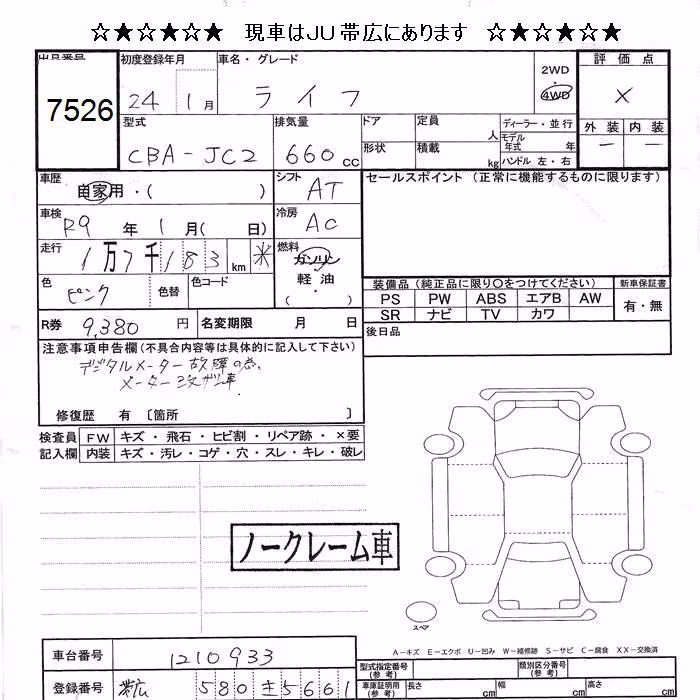 ☆★☆★☆★ 現車はJU帯広にあります ☆★☆★☆★
出品番号 7526
初度登録年月 24 1月
車名・グレード ライフ
2WD 4WD
評価点 ×
型式 CBA-JC2
排気量 660cc
ドア 定員 人
形状 積載 kg
ディーラー・並行
モデル年式 年
ハンドル 左・右
外装 内装
ー ー
車歴 自家用・( )
シフト AT
セールスポイント (正常に機能するものに限ります)
車検 R9年 1月( 日)
冷房 AC
走行 1万7千183km *
燃料 ガソリン
軽油
( )
色 ピンク 色替 色コード
装備品 (純正品に限り○をつけてください) 新車保証書
PS PW ABS エアB AW 有・無
SR ナビ TV カワ
R券 9,380円 名変期限 月 日
後日品
注意事項申告欄(不具合内容等は具体的に記入して下さい)
デジタルメーター故障の為、
メーター改ザン車
修復歴 有 〔箇所 〕
検査員 FW キズ・飛石・ヒビ割・リペア跡・×要
記入欄 内装 キズ・汚レ・コゲ・穴・スレ・キレ・破レ
ノークレーム車
スペア
A-キズ E-エクボ U-凹み W-補修跡 S-サビ C-腐食 XX-交換済
車台番号 1210933
型式指定番号(参考) 類別区分番号(参考)
登録番号 帯広 580 ま5661
車庫証明用(参考) 長さ cm 幅 cm 高さ cm